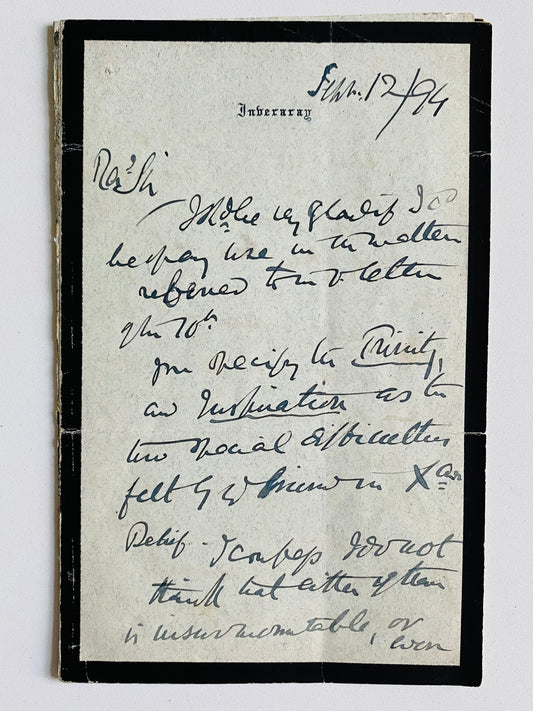 Sepr. 12/94
Inveraray
Revd Sir
I shd be very glad if I cd
be of any use in the matter
referred to in yr letter
of the 10th
you specify the Trinity,
and Inspiration as the
two special difficulties
felt by yr friend in Xan
Belief. I confess I do not
think that either of them
is insurmountable, or
even